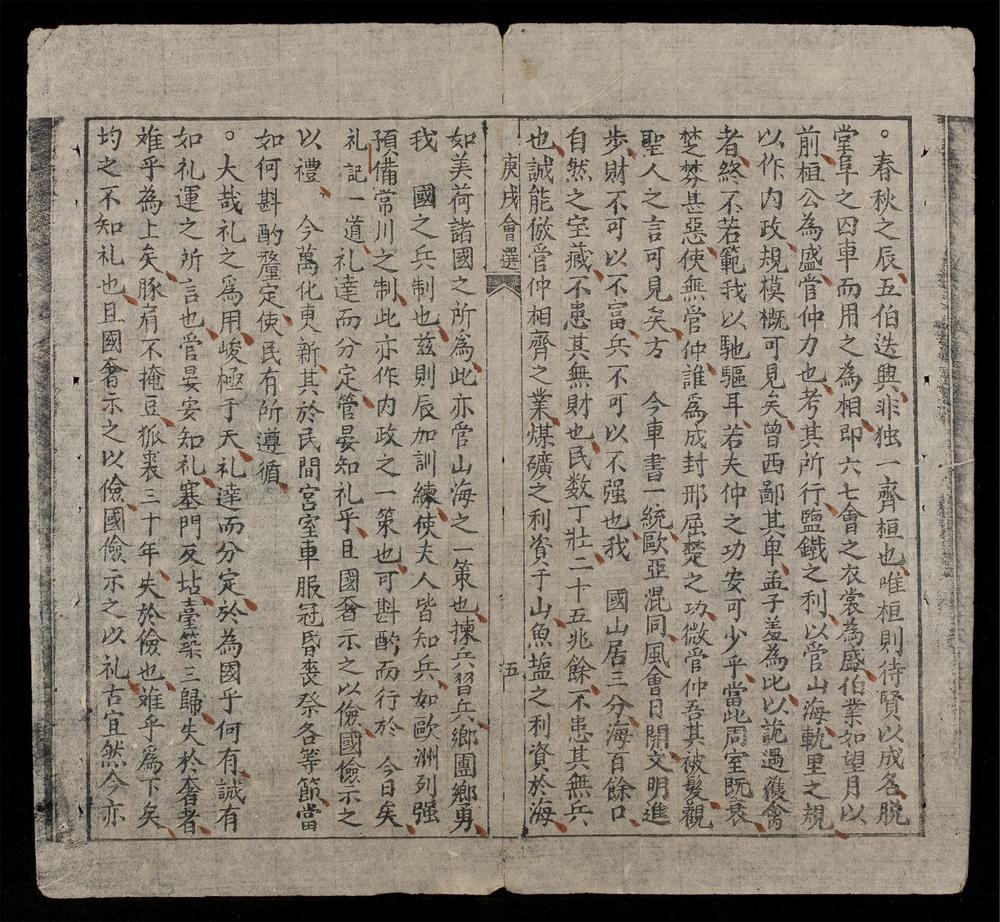 。春秋之辰五伯迭興非独一齊桓也唯桓則待賢以成名脫
堂阜之囚車而用之為相即六七會之衣裳為盛伯業如望月以
前桓公為盛管仲力也考其所行鹽鐵之利以管山海軌里之規
以作内政規模概可見矣曾西鄙其卑孟子羞為比以詭遇獲禽
者終不若範我以馳驅耳若夫仲之功安可少乎當此周室既衰
楚氛甚惡使無管仲誰爲成封邢屈楚之功微管仲吾其被髮觀
聖人之言可見矣方　今車書一統歐亞混同風會日開文明進
步財不可以不富兵不可以不强也我　國山居三分海百餘口
自然之宝藏不患其無財也民数丁壯二十五兆餘不患其無兵
也誠能倣管仲相齊之業煤礦之利資于山魚塩之利資於海
庚戌會選
五
如美荷諸國之所爲此亦管山海之一策也揀兵習兵鄉團鄉勇
我　國之兵制也兹則辰加訓練使夫人皆知兵如歐洲列强
預備常川之制此亦作内政之一策也可斟酌而行於　今日矣
礼記一道礼達而分定管晏知礼乎且國奢示之以儉國儉示之
以禮　今萬化更新其於民間宮室車服冠昏喪祭各等節當
如何斟酌釐定使民有所遵循
。大哉礼之爲用峻極于天礼達而分定於為國乎何有誠有
如礼運之所言也管晏安知礼塞門反坫臺築三歸失於奢者
难乎為上矣豚肩不掩豆狐裘三十年失於儉也难乎爲下矣
均之不知礼也且國奢示之以儉國儉示之以礼古宜然今亦